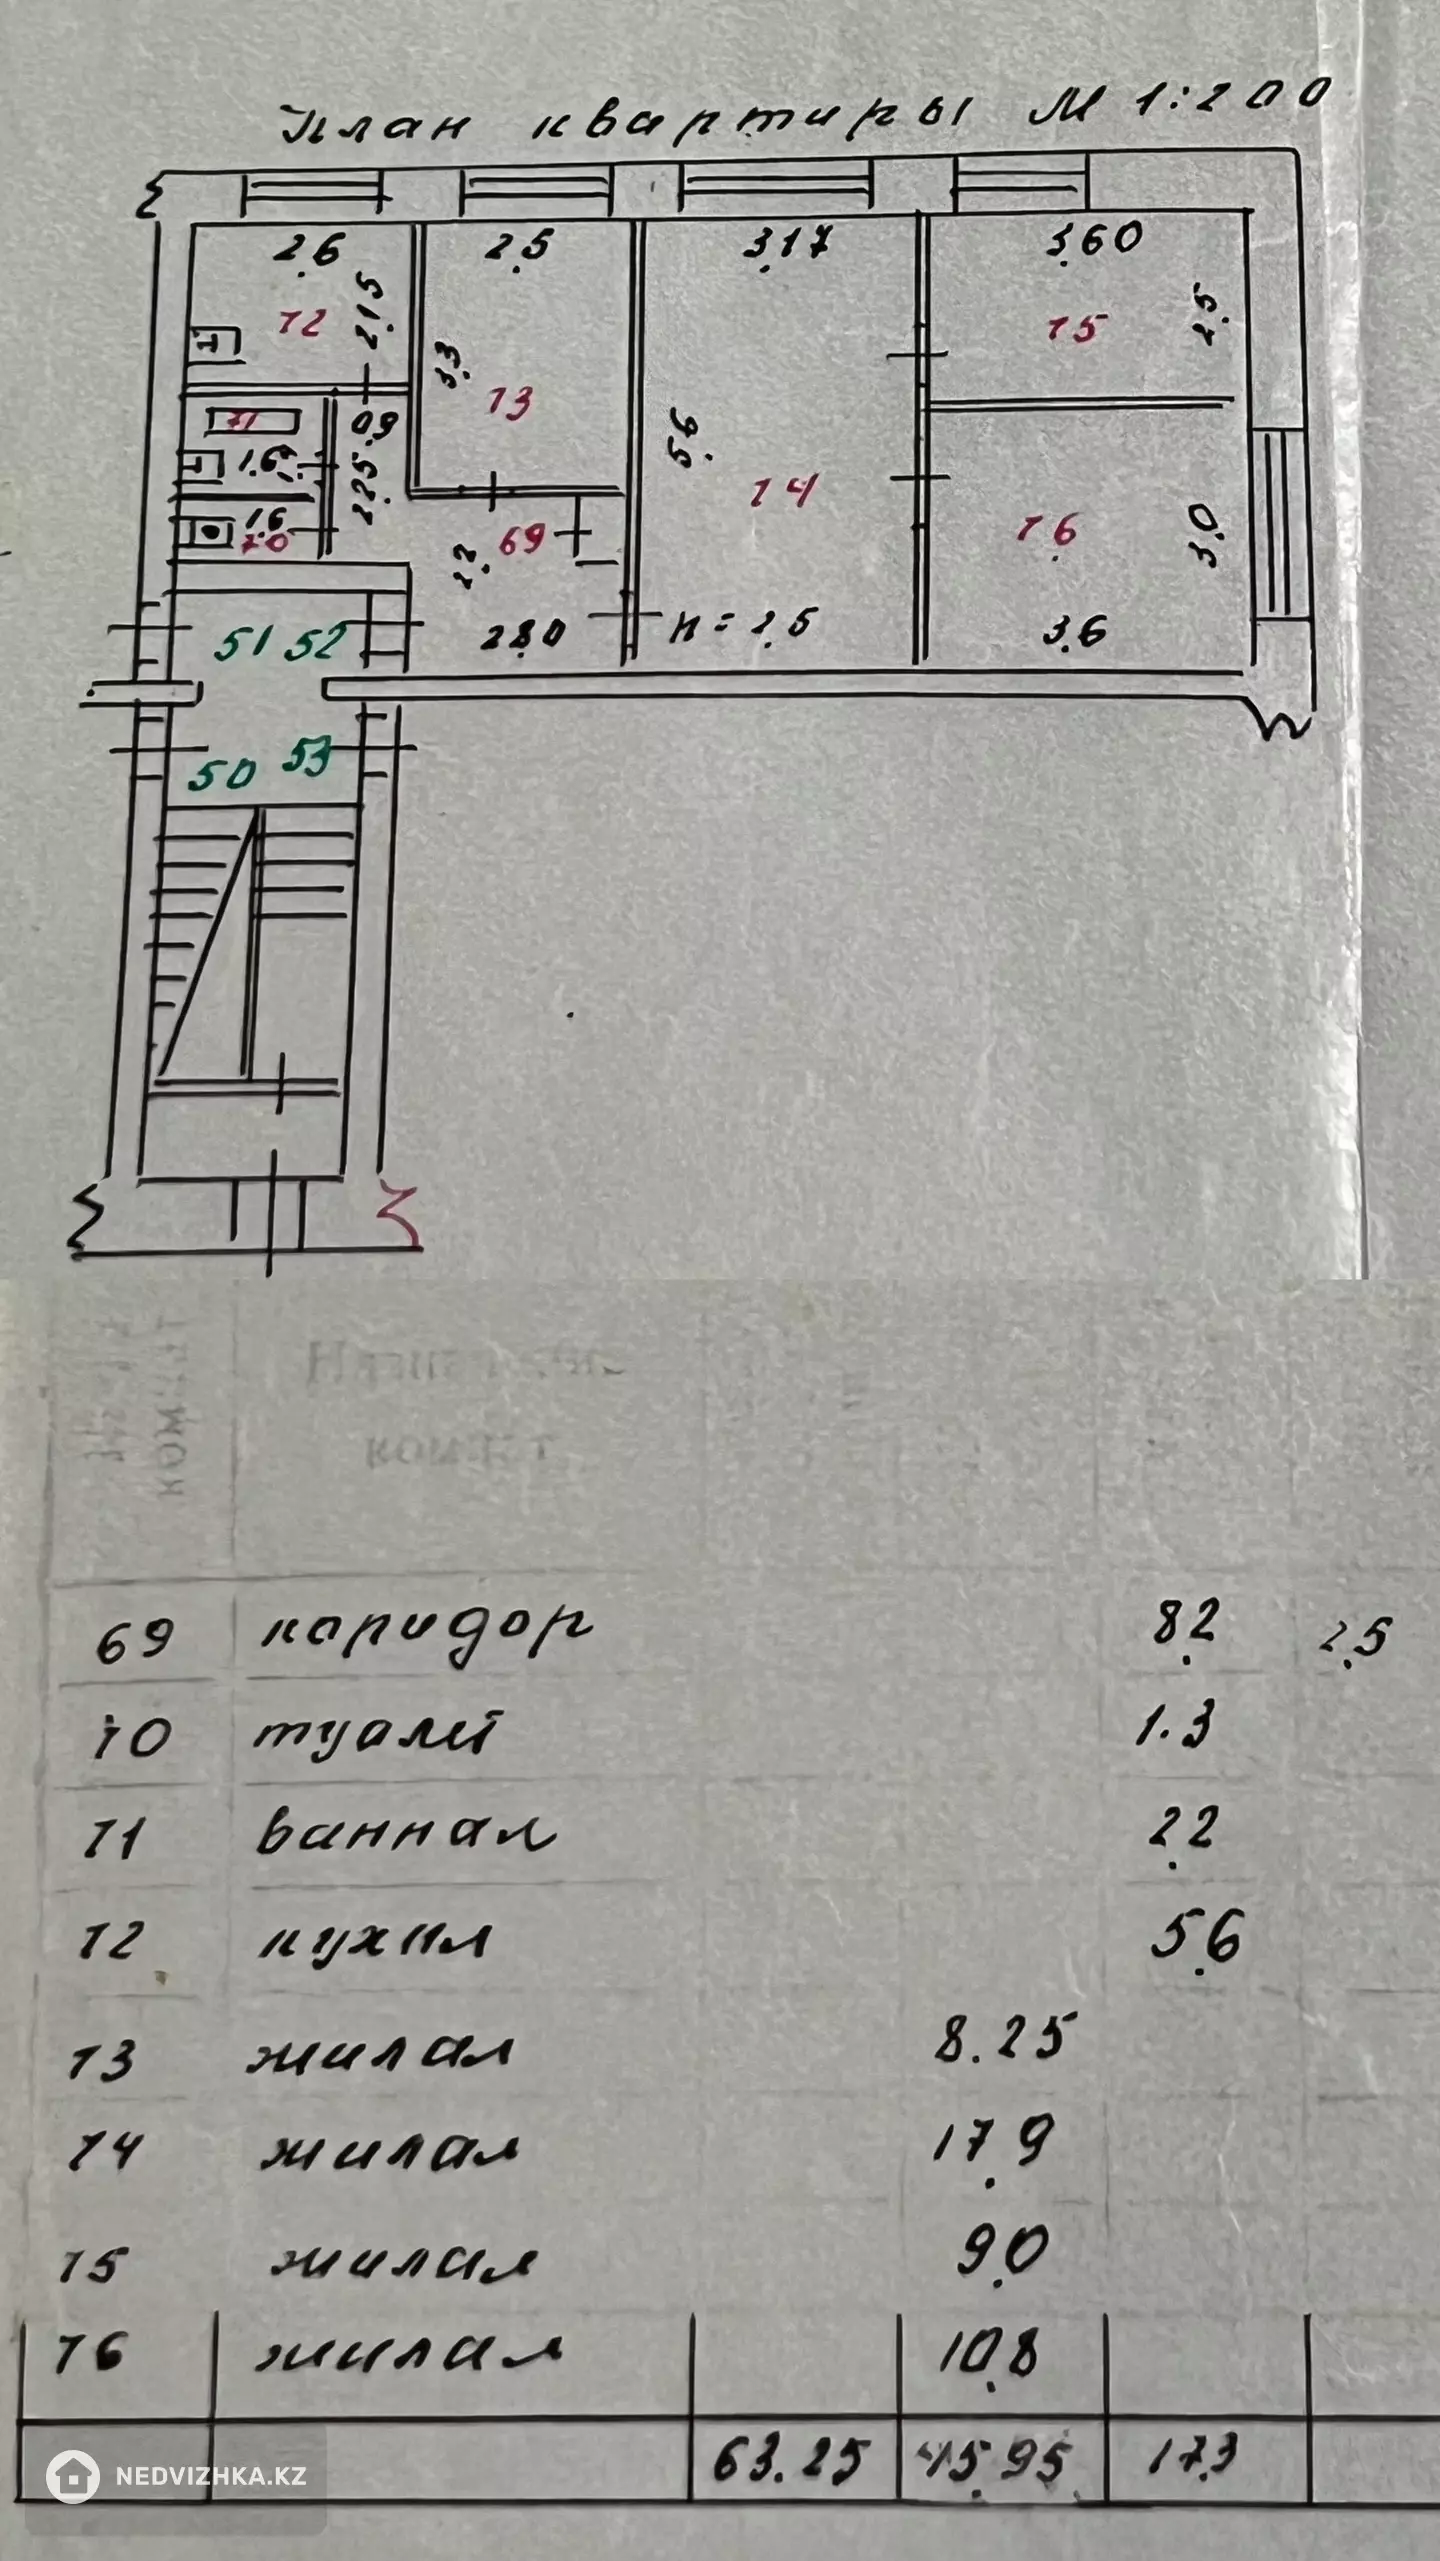 План квартиры М 1:200
2.6
2.5
3.17
3.60
2.15
72
3.3
73
75
2.5
71
0.9
1.6
2.25
5.6
74
1.6
70
69
2.2
76
3.0
51 52
2.80
н = 2.5
3.6
50 53
69 коридор 8.2 2.5
70 туалет 1.3
71 ванная 2.2
72 кухня 5.6
73 жилая 8.25
74 жилая 17.9
75 жилая 9.0
76 жилая 10.8
63.25 45.95 17.3
NEDVIZHKA.KZ